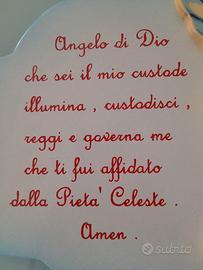 Angelo di Dio
che sei il mio custode
illumina , custodisci ,
reggi e governa me
che ti fui affidato
dalla Pietà Celeste .
Amen .
subito